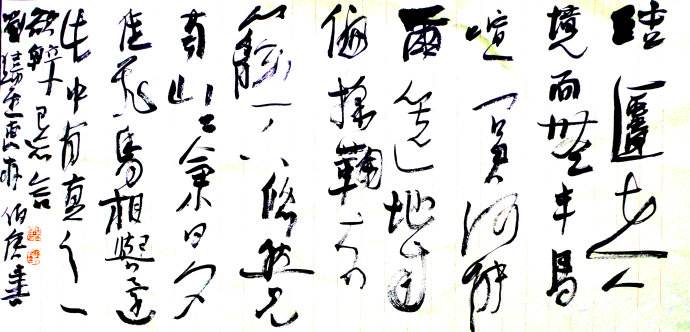 結廬在人
境而無車馬
喧問君何能
爾心遠地自
偏採菊東
籬下悠然見
南山山氣日夕
佳飛鳥相與還
此中有真意
欲辨已忘言
書